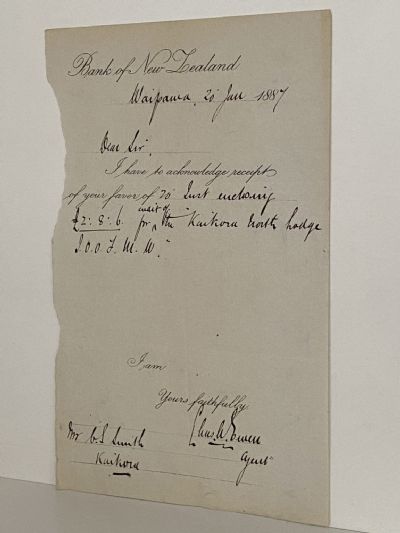 Bank of New Zealand
Waipawa, 20 Jan 1887
Dear Sir,
I have to acknowledge receipt
of your favor of 20 Inst enclosing
£2: 8: 6. for credit of the Kaikora North Lodge
I.O.O.F. M.W."
I am
Yours faithfully
Mr C.S. Smith
Kaikora
Chas. W. Bowen
Agent